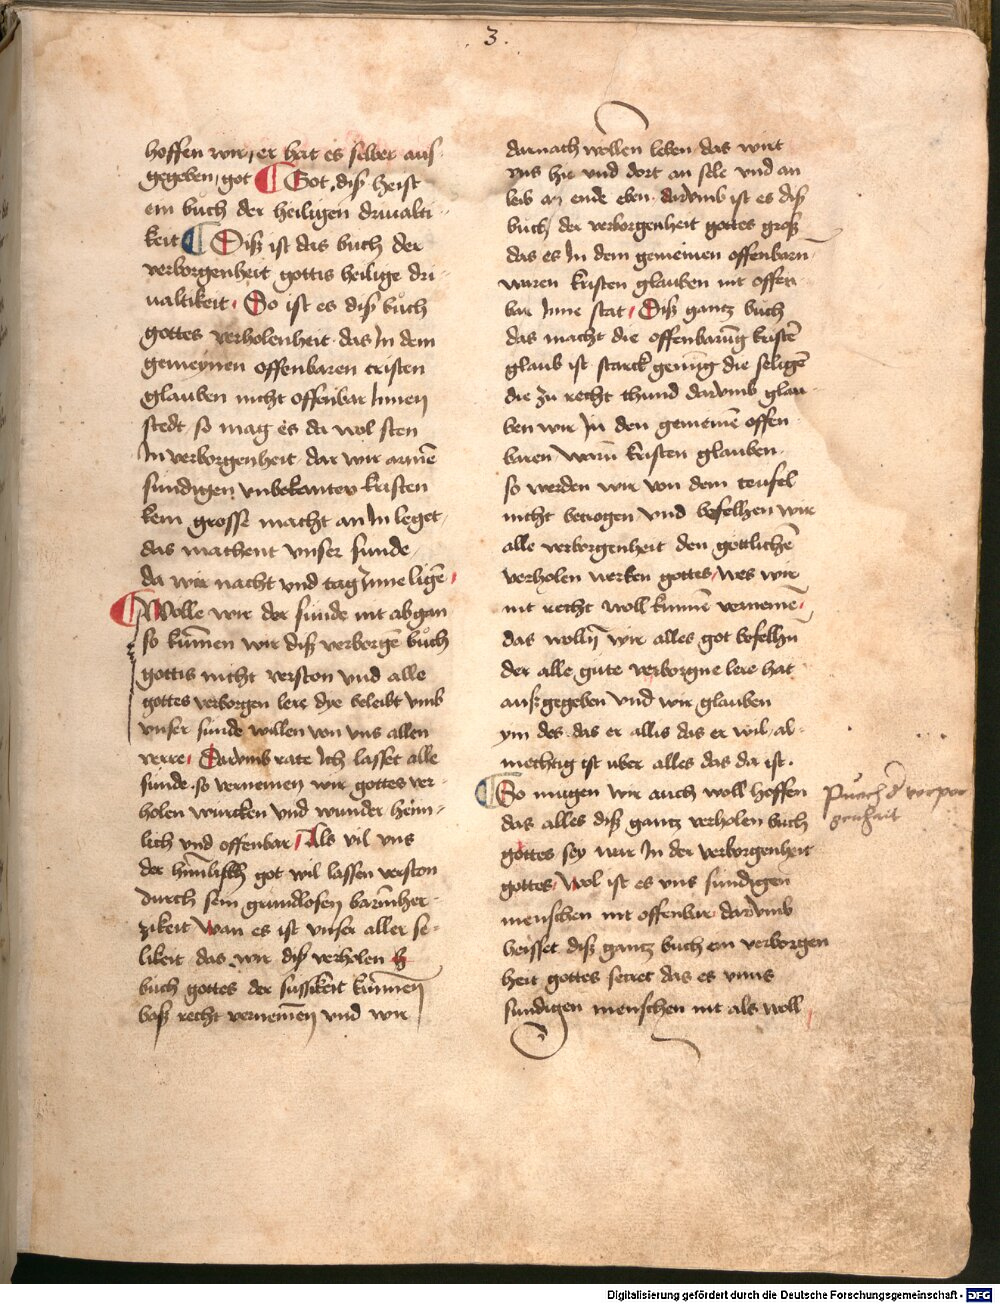 .3.
hoffen wir, er hat es selber aus
gegeben, got ¶ Got, diß heist
ein buch der heiligen driualti-
keit ¶ Diß ist das buch der
verborgenheit gottis heilige dri-
ualtikeit. So ist es diß buͦch
gottes verholenheit. das In dem
gemeynen offenbaren cristen
glauben nicht offenbar Innen
stedt, so mag es da wol sten
In verborgenheit. dar wir armē
sundigen vnbekanten kristen
kein grosse macht an In leget,
das machent vnser sunde,
da wir nacht vnd tag Inne ligē
¶ Wolle wir der sunde nit abgan
so kunnen wir diß verborgē buͦch
gottis nicht verston vnd alle
gottes verborgen lere dye beleibt vmb
vnser sunde willen von vns allen
verre. Darvmb rate Ich lasset alle
sunde. so vernemen wir gottes ver-
holen wurcken vnd wunder heim-
lich vnd offenbar, Als vil vns
der himlisch got wil lassen verston
durch sein grundlosen barmher-
zikeit, wan es ist vnser aller se-
likeit das wir diß verholen
buch gottes der sussikeit kunnen
baß recht vernemen vnd wir
darnach wollen leben, das wirt
vns hie vnd dort an sele vnd an
leib an ende eben. darvmb ist es diß
buch, der verborgenheit gottes groß
das es In dem gemeinen offenbarn
waren kristen glauben nit offen
bar Inne stat. Diß gantz buch
das macht die offenbarūg kristē
glaub ist starck genūg die seligē
die zu recht thund darvmb glau-
ben wir In den gemeinē offen
baren, warn kristen glauben.
so werden wir von dem teufel
nicht betrogen, vnd befelhen wir
alle verborgenheit den gottlichē
verholen werken gottes, wes wir
nit recht woll kunnē vernemē,
das wolln wir alles got befelhn
der alle gute verborgne lere hat
auß gegeben vnd wir glauben
ym des. das er allis das er wil, al-
mechtig ist uber alles das da ist.
¶ So mugen wir auch woll hoffen
das alles diß gantz verholen buch
gottes sey war In der verborgenheit
gottes, Wol ist es vns sundigen
menschen nit offenbar. darvmb
heisset diß gantz buch ein verborgen
heit gottes secret das es vnns
sundigen menschen nit als woll
Puech d' verpor
genhait
Digitalisierung gefördert durch die Deutsche Forschungsgemeinschaft - DFG